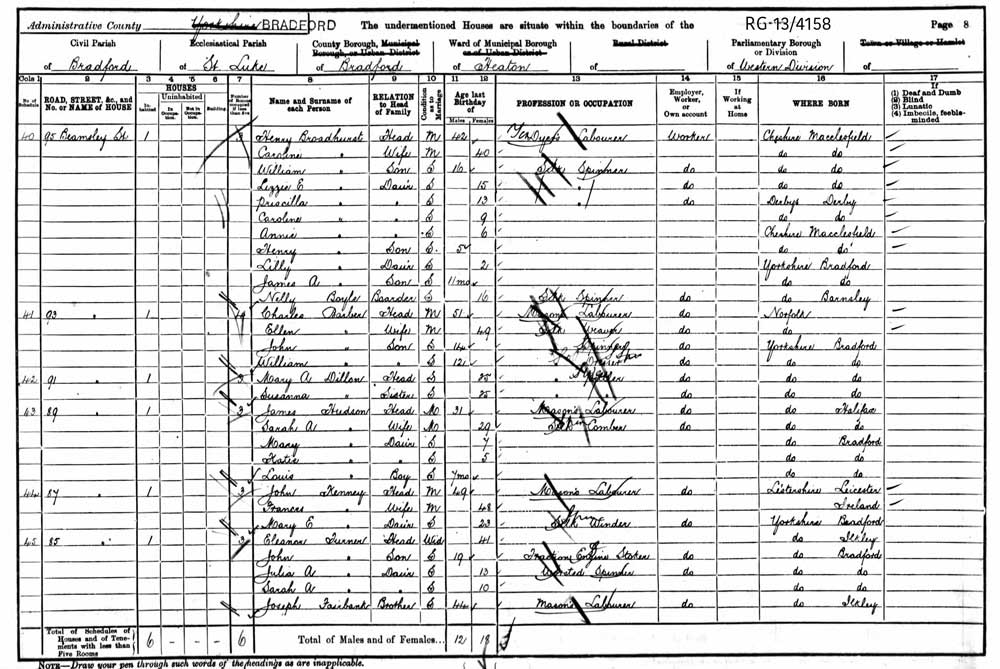 Administrative County Yorkshire BRADFORD The undermentioned Houses are situate within the boundaries of the RG-13/4158 Page 8
Civil Parish Ecclesiastical Parish County Borough, Municipal Borough, or Urban District Ward of Municipal Borough or of Urban District Rural District Parliamentary Borough or Division Town or Village or Hamlet
of Bradford of St. Luke of Bradford of Heaton of of Western Division of
Cols 1 2 3 4 5 6 7 8 9 10 11 12 13 14 15 16 17
No. of Schedule ROAD, STREET, &c., and No. or NAME of HOUSE HOUSES Inhabited Uninhabited In Occupation Not in Occupation Building Number of Rooms occupied if less than five Name and Surname of each Person RELATION to Head of Family Condition as to Marriage Age last Birthday of Males Females PROFESSION OR OCCUPATION Employer, Worker, or Own account If Working at Home WHERE BORN If (1) Deaf and Dumb (2) Blind (3) Lunatic (4) Imbecile, feeble-minded
40 95 Beamsley St 1 Henry Broadhurst Head M 42 Dyer's Labourer Worker Cheshire Macclesfield
Caroline " Wife M 40 do do
William " Son S 16 Silk Spinner do do do
Lizzie E " Daur S 15 do do do
Priscilla " " S 13 do Derbys Derby
Caroline " " S 9 do do
Annie " " S 6 Cheshire Macclesfield
Henry " Son S 5 do do
Lilly " Daur S 2 Yorkshire Bradford
James A " Son S 11mo do do
Nelly Boyle Boarder S 16 Silk Spinner do do Barnsley
41 93 " 1 4 Charles Barber Head M 51 Mason's Labourer do Norfolk
Ellen " Wife M 49 Silk Weaver do do
John " Son S 14 " Spinner do Yorkshire Bradford
William " " S 12 do do do
42 91 " 1 3 Mary A Dillon Head S 25 do do do
Susanna " Sister S 25 do do do
43 89 " 1 3 James Hudson Head M 31 Mason's Labourer do do Halifax
Sarah A " Wife M 29 Comber do do do
Mary " Daur S 7 do Bradford
Katie " " S 5 do do
Louis " Boy S 7mo do do
44 87 1 3 John Kenney Head M 49 Mason's Labourer do Leistershire Leicester
Frances " Wife M 48 Ireland
Mary E " Daur S 23 Silk Winder do Yorkshire Bradford
45 85 " 1 3 Eleanor Turner Head Wid 41 do Ilkley
John " Son S 19 Traction Engine Stoker do do Bradford
Julia A " Daur S 13 Worsted Spinner do do do
Sarah A " " S 10 do do
Joseph Fairbank Brother S 44 Mason's Labourer do do Ilkley
Total of Schedules of Houses and of Tenements with less than Five Rooms 6 – – – 6 Total of Males and of Females... 12 18
NOTE—Draw your pen through such words of the headings as are inapplicable.